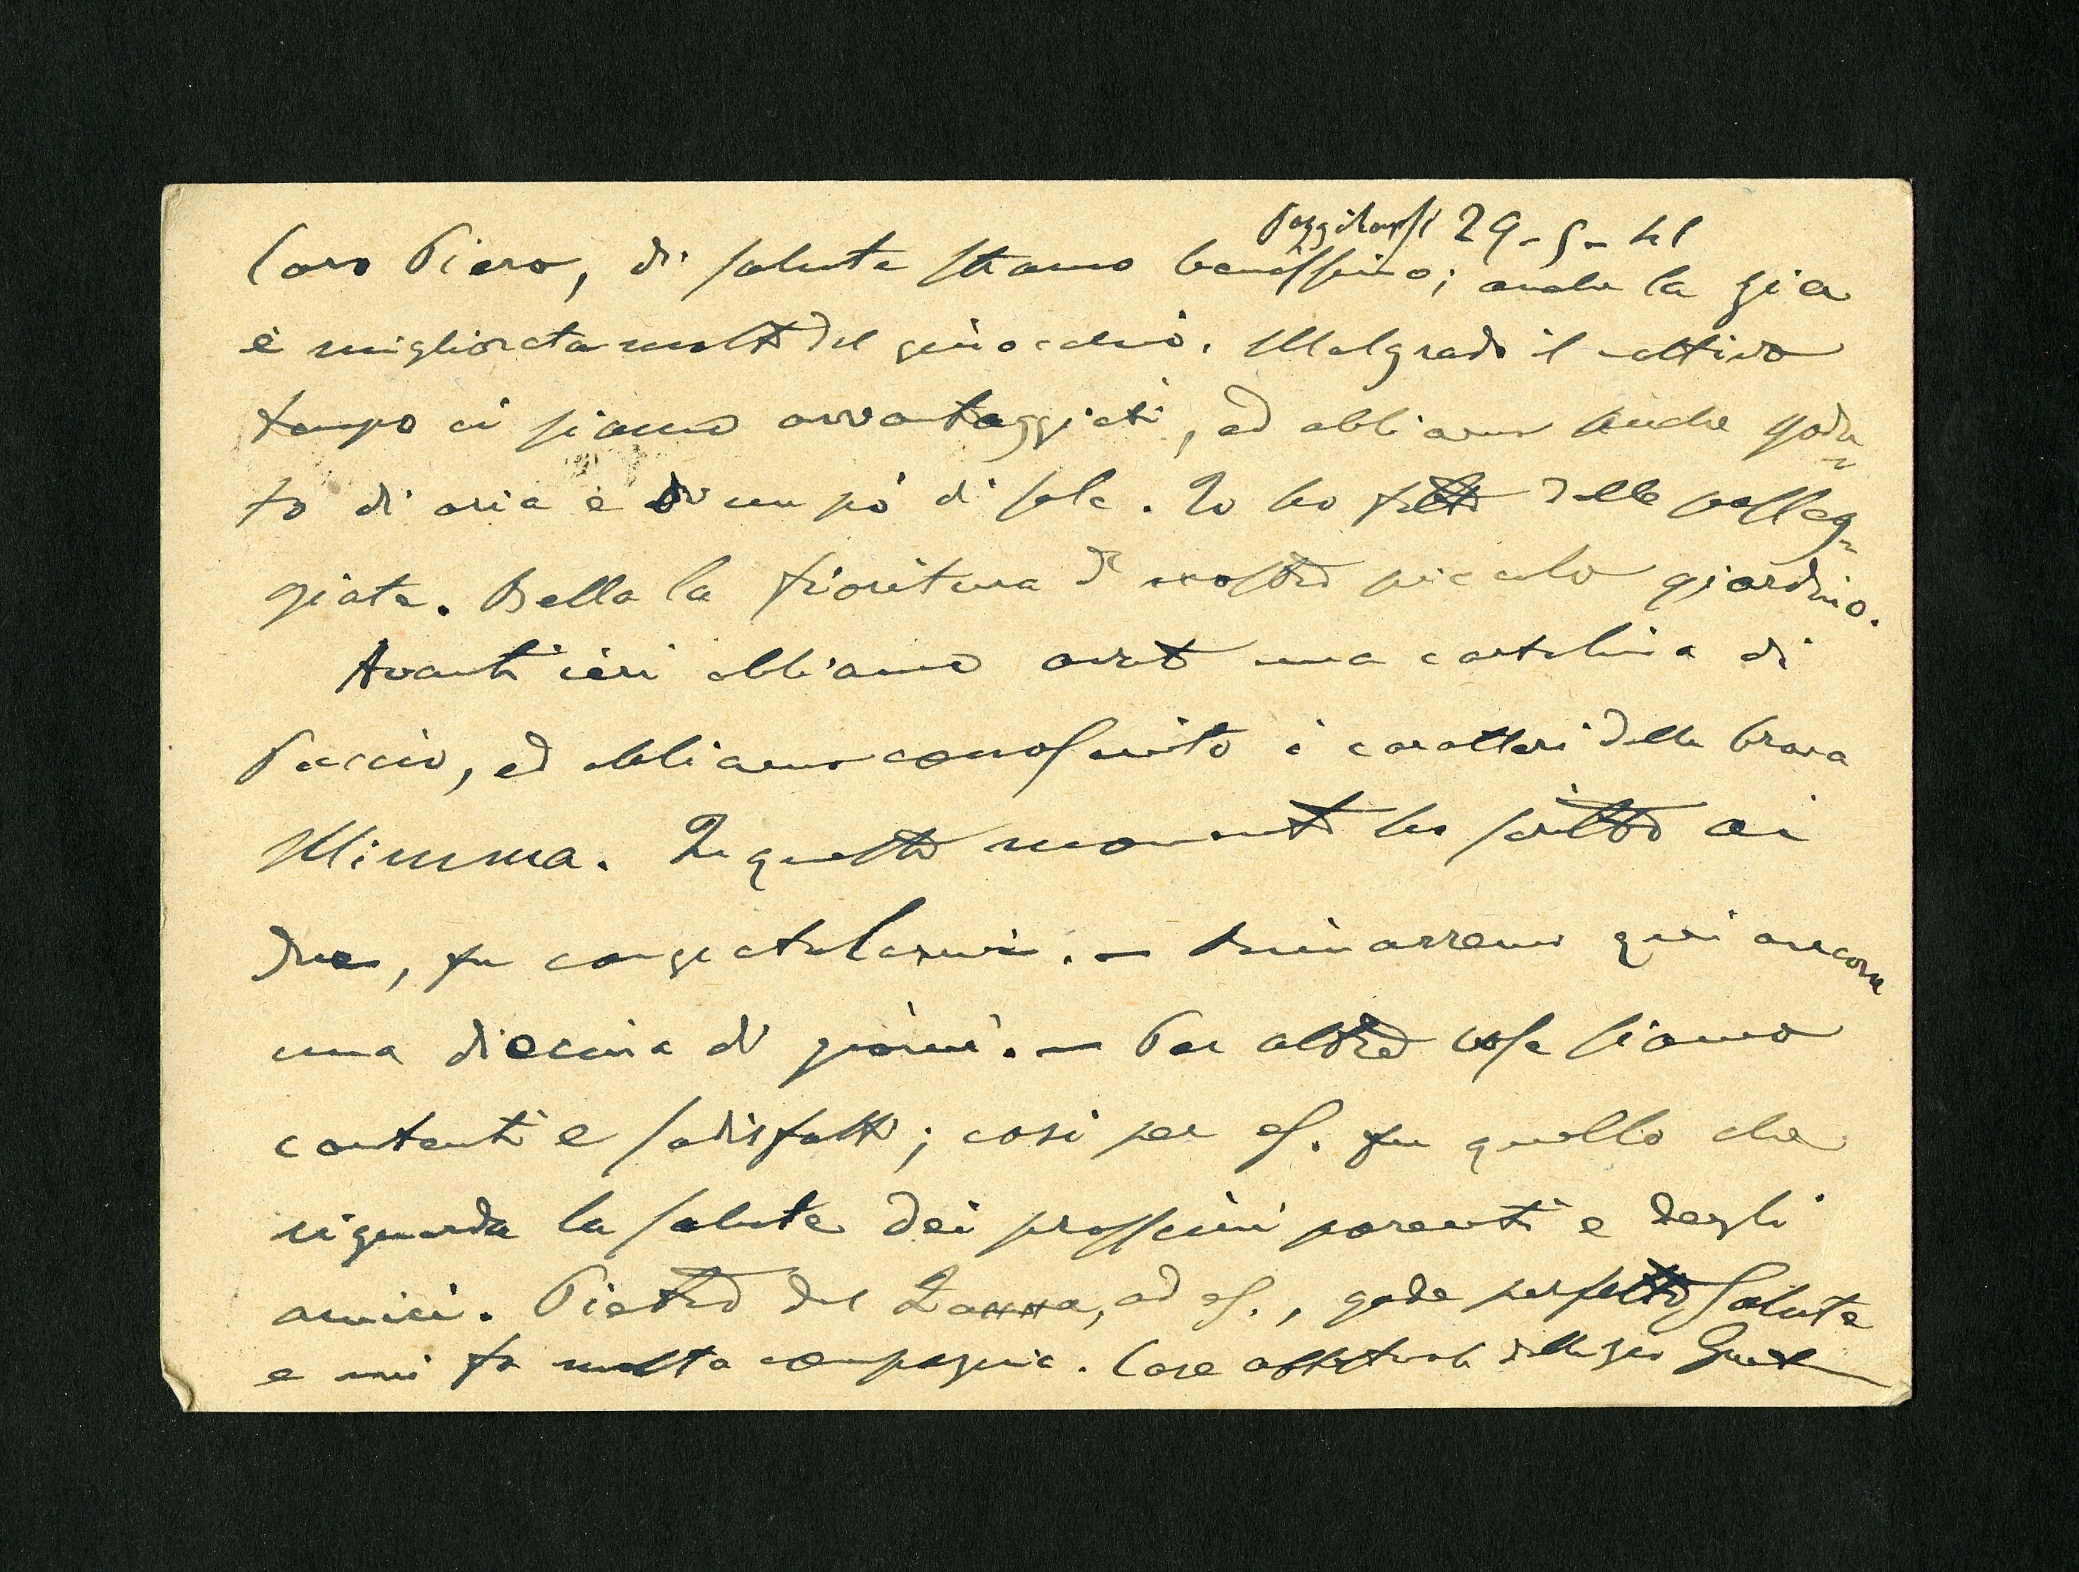 Poggibonsi 29-5-41
Caro Piero, di salute stiamo benissimo; anche la zia
è migliorata molto del ginocchio. Malgrado il cattivo
tempo ci siamo avvantaggiati, ed abbiamo anche godu-
to di aria e di un pò di sole. Io ho fatto delle passeg-
giate. Bella la fioritura di nostro piccolo giardino.
Avant'ieri abbiamo avuto una cartolina di
Puccio, ed abbiamo conosciuto i caratteri della brava
Mimma. In questo momento ho scritto ai
due, per congratularmi. - Rimarremo qui ancora
una diecina di giorni. - Per altre cose siamo
contenti e sodisfatti; così per es. per quello che
riguarda la salute dei prossimi parenti e degli
amici. Pietro del Zanna, ad es., gode perfetta salute
e mi fa molta compagnia. Care affettuosità dello zio